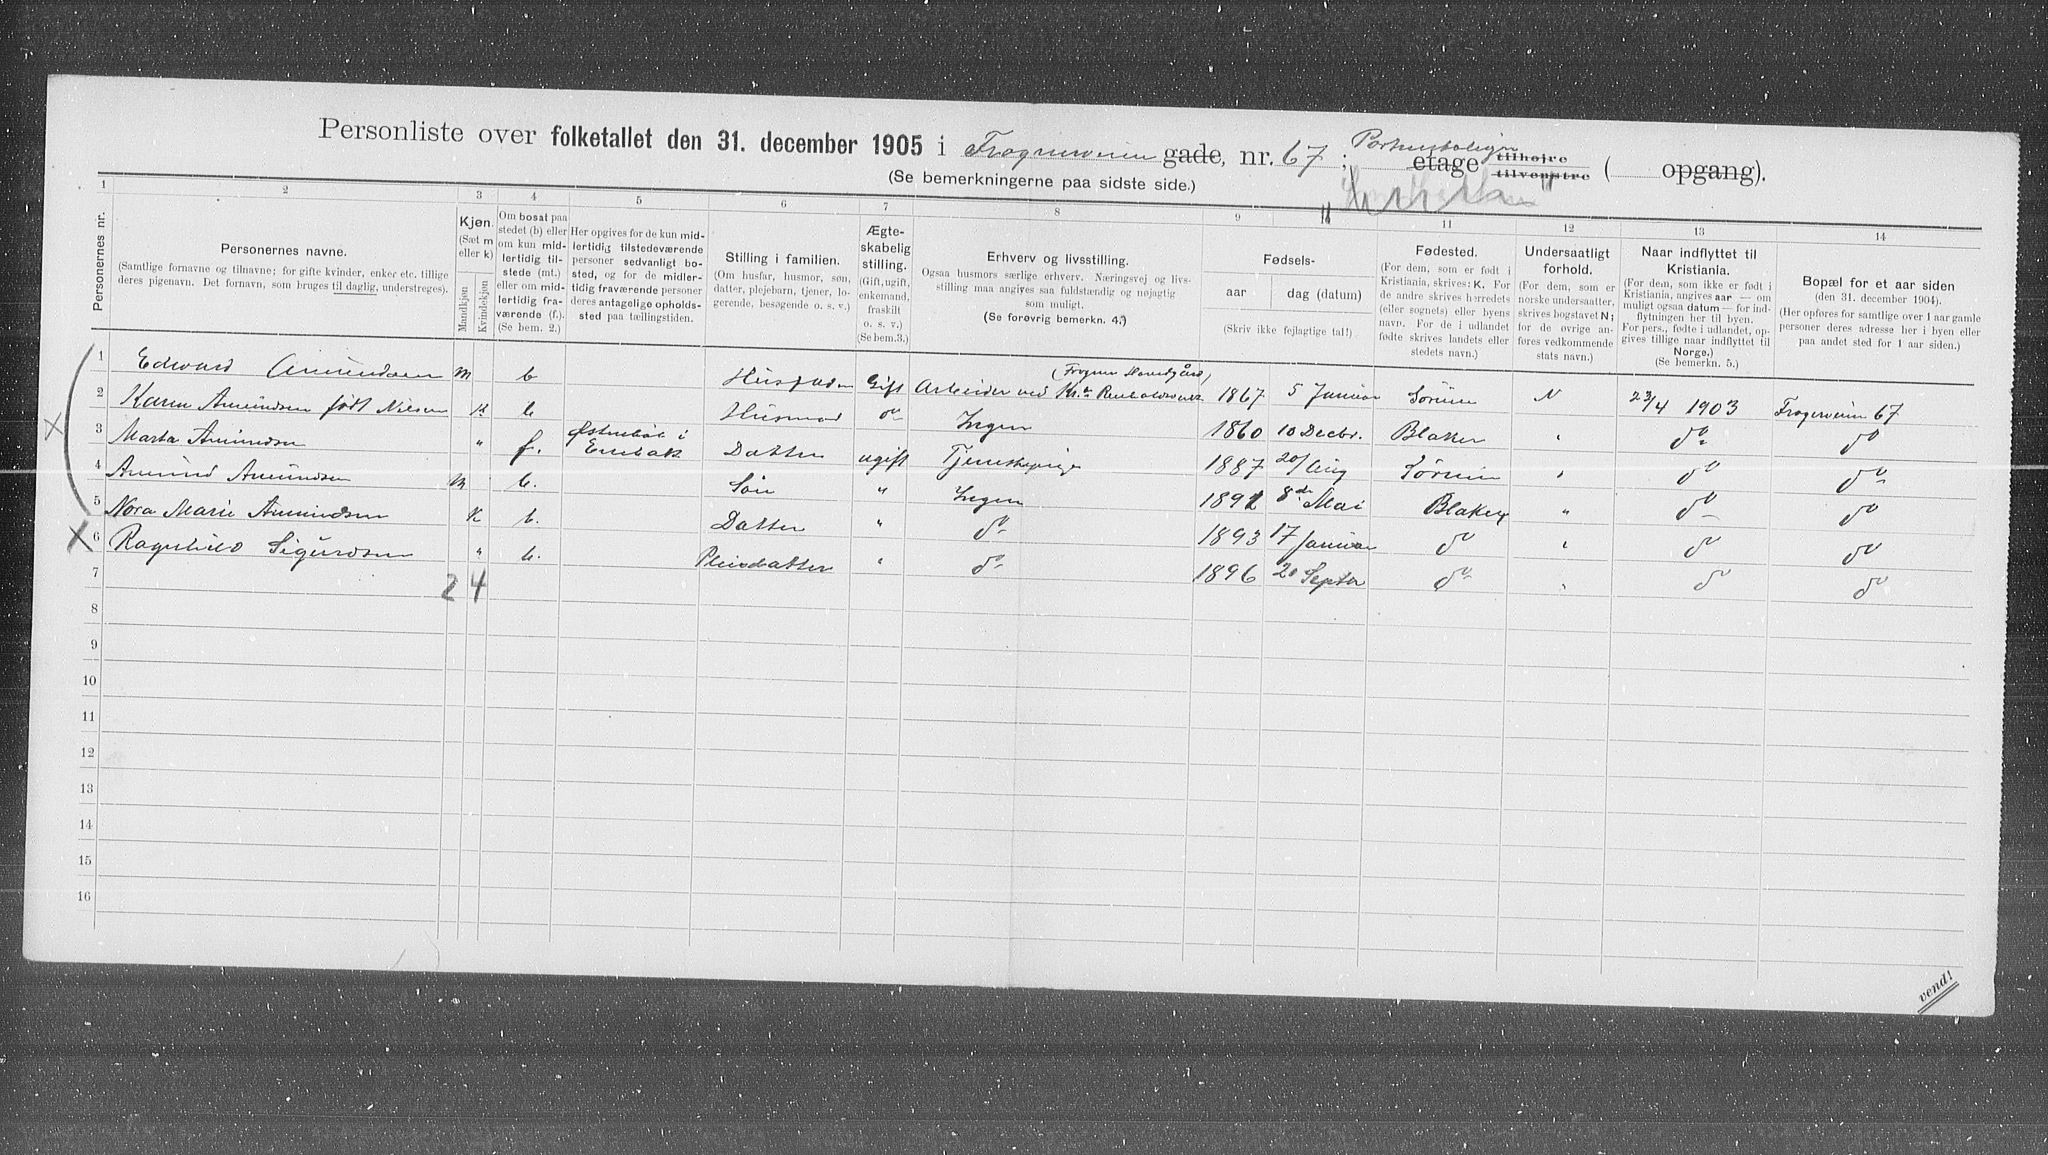 Personliste over folketallet den 31. december 1905 i Frognerveien gade, nr. 67; Portnerboligen etage tilhøjre tilvenstre ( opgang).
(Se bemerkningerne paa sidste side.)
1 2 3 4 5 6 7 8 9 11 12 13 14
Personernes nr.
Personernes navne.
(Samtlige fornavne og tilnavne; for gifte kvinder, enker etc. tillige
deres pigenavn. Det fornavn, som bruges til daglig, understreges).
Kjøn.
(Sæt m
eller k)
Mandkjøn
Kvindekjøn
Om bosat paa
stedet (b) eller
om kun mid-
lertidig til-
stede (mt.)
eller om mid-
lertidig fra-
værende (f.).
(Se bem. 2.)
Her opgives for de kun mid-
lertidig tilstedeværende
personer sedvanligt bo-
sted, og for de midler-
tidig fraværende personer
deres antagelige opholds-
sted paa tællingstiden.
Stilling i familien.
(Om husfar, husmor, søn,
datter, plejebarn, tjener, lo-
gerende, besøgende o. s. v.)
Ægte-
skabelig
stilling.
(Gift, ugift,
enkemand,
fraskilt
o. s. v.)
(Se bem.3.)
Erhverv og livsstilling.
Ogsaa husmors særlige erhverv. Næringsvej og livs-
stilling maa angives saa fuldstændig og nøjagtig
som muligt.
(Se forøvrig bemerkn. 4.)
Fødsels-
aar
dag (datum)
(Skriv ikke fejlagtige tal!)
Fødested.
(For dem, som er født i
Kristiania, skrives: K. For
de andre skrives herredets
(eller sognets) eller byens
navn. For de i udlandet
fødte skrives landets eller
stedets navn.)
Undersaatligt
forhold.
(For dem, som er
norske undersaatter,
skrives bogstavet N;
for de øvrige an-
føres vedkommende
stats navn.)
Naar indflyttet til
Kristiania.
(For dem, som ikke er født i
Kristiania, angives aar — om
muligt ogsaa datum — for ind-
flytningen her til byen.
For pers., fødte i udlandet, op-
gives tillige naar indflyttet til
Norge.)
(Se bemerkn. 5.)
Bopæl for et aar siden
(den 31. december 1904).
(Her opføres for samtlige over 1 aar gamle
personer deres adresse her i byen eller
paa andet sted for 1 aar siden.)
1 Edward Amundsen M b Husfader Gift Arbeider ved Kr.a Renholdsverk (Frogner Hovedgård) 1867 5 Januar Sørum N 23/4 1903 Frognerveien 67
2 Karen Amundsen født Nielsen K b Husmod do Ingen 1860 10 Decbr. Blaker " do do
3 Marta Amundsen " f. Østenbøl i Enebak Datter ugift Tjenestepige 1887 20/Aug Sørum " do do
4 Amund Amundsen M b. Søn " Ingen 1891 8de Mai Blaker " do do
5 Nora Marie Amundsen K b. Datter " do 1893 17 Januar do " do do
6 Ragnhild Sigurdsen " b. Pleiedatter " do 1896 20 Septbr do " do do
7 2 4
8
9
10
11
12
13
14
15
16
vend!